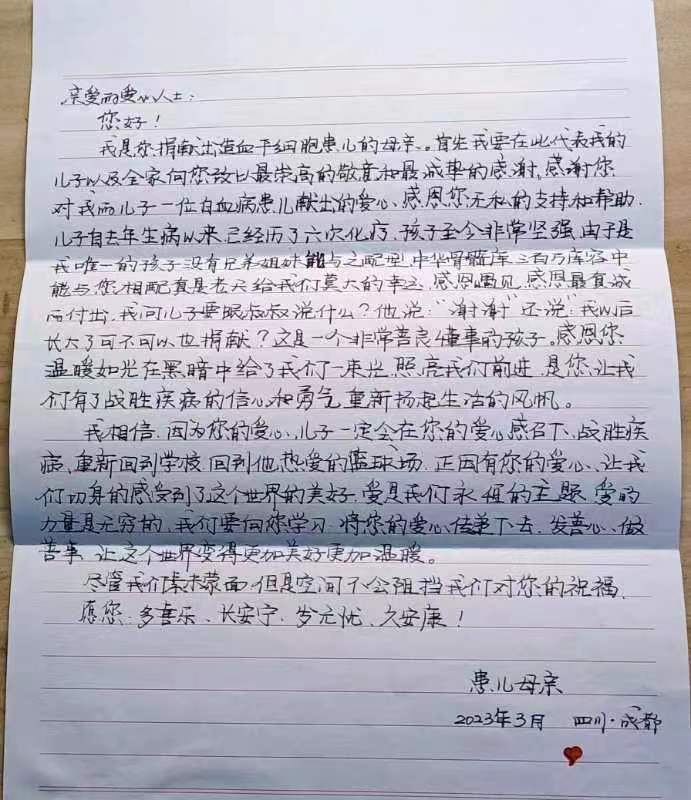 亲爱的爱心人士：
您好！
我是您捐献出造血干细胞患儿的母亲。首先我要在此代表我的
儿子以及全家向您致以最崇高的敬意和最诚挚的感谢，感谢您
对我而儿子一位白血病患儿献出的爱心、感恩您无私的支持和帮助，
儿子自去年生病以来，已经历了六次化疗，孩子至今非常坚强，由于是
我唯一的孩子没有兄弟姐妹能与之配型，中华骨髓库三百万库容中
能与您相配真是老天给我们莫大的幸运，感恩遇见，感恩最真诚
的付出，我问儿子要跟叔叔说什么？他说：“谢谢”还说：我以后
长大了可不可以也捐献？这是一个非常善良懂事的孩子。感恩您
温暖如光在黑暗中给了我们一束光，照亮我们前进，是您让我
们有了战胜疾病的信心和勇气，重新扬起生活的风帆。
我相信，因为您的爱心、儿子一定会在您的爱心感召下、战胜疾
病，重新回到学校，回到他热爱的篮球场，正因有您的爱心、让我
们切身的感受到了这个世界的美好，爱是我们永恒的主题，爱的
力量是无穷的，我们要向您学习，将您的爱心传递下去，发善心、做
善事，让这个世界变得更加美好更加温暖。
尽管我们素未蒙面，但是空间不会阻挡我们对您的祝福，
愿您：多喜乐、长安宁、岁无忧、久安康！
患儿母亲
2023年3月 四川·成都